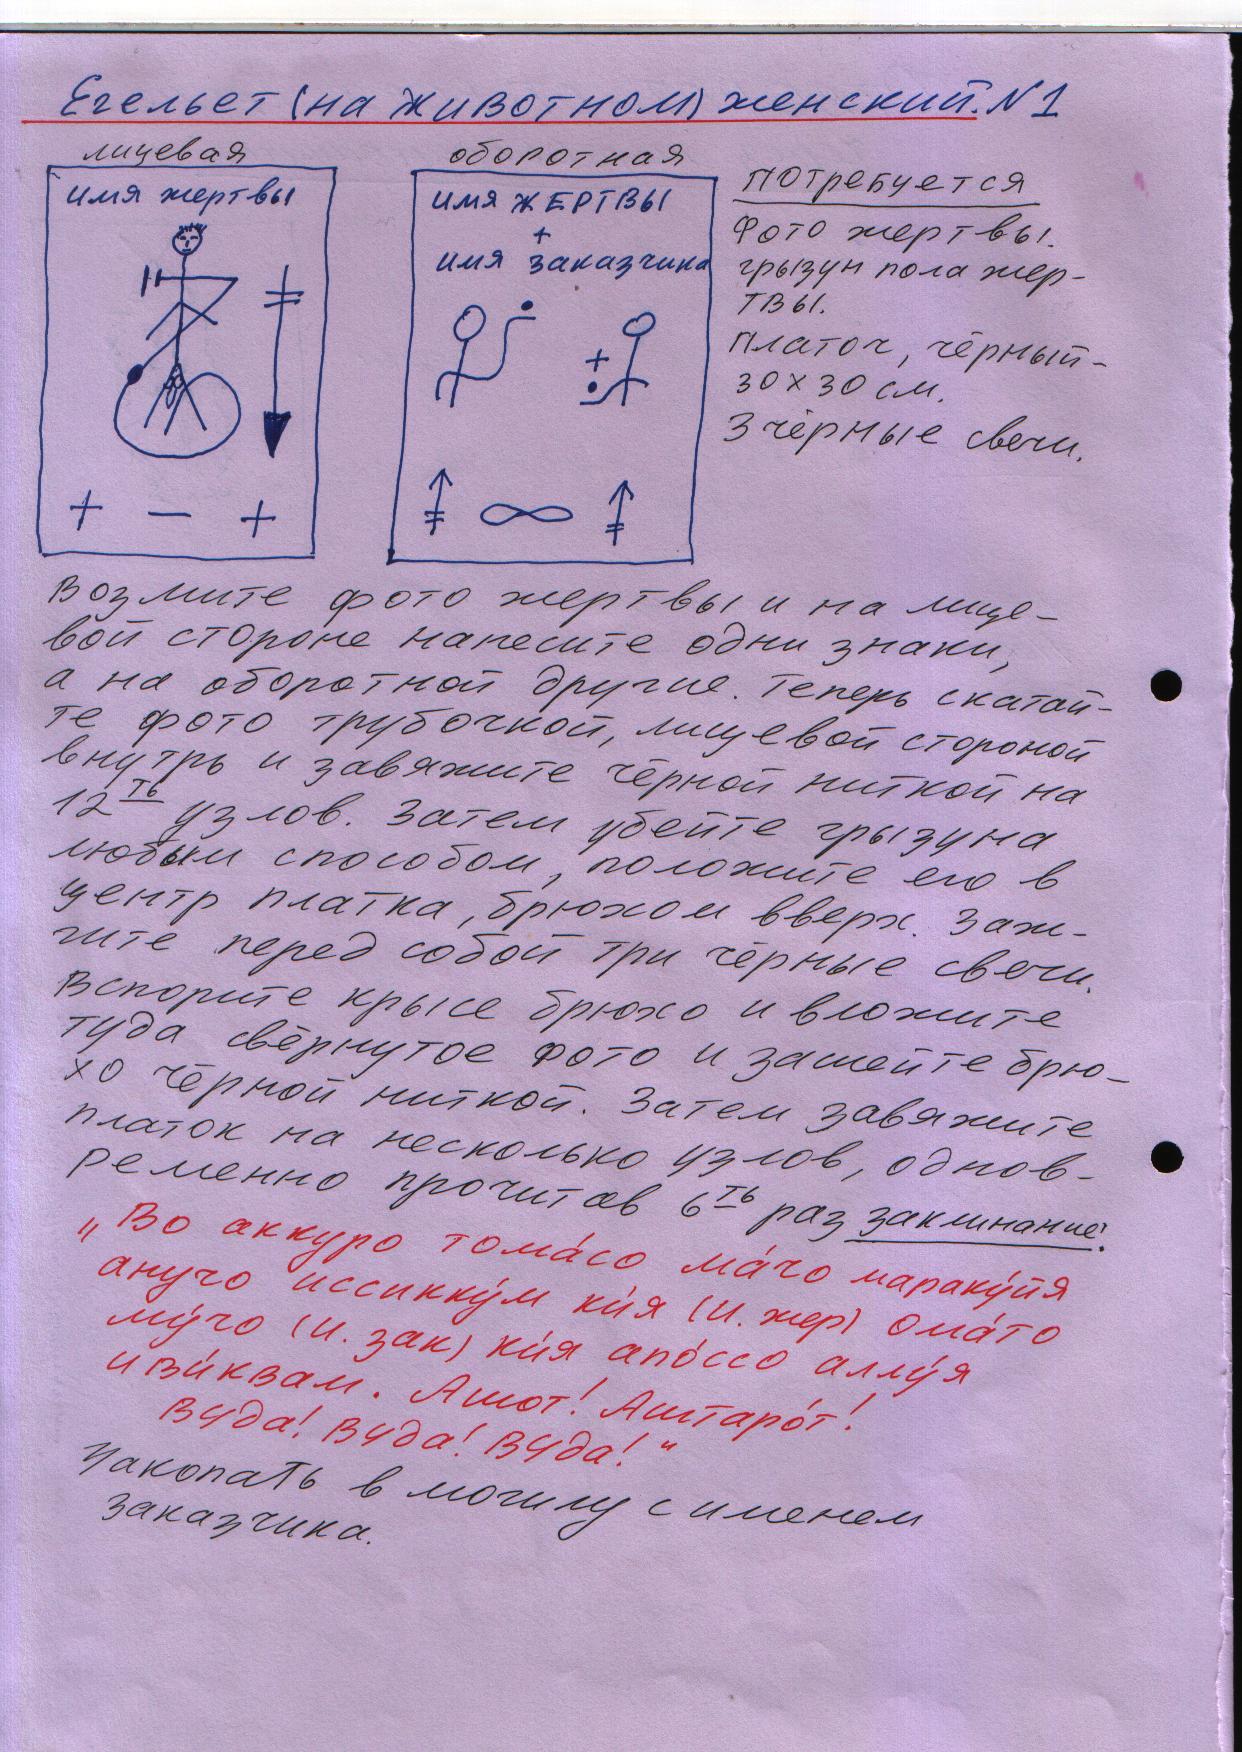 Егельет (на животном) женский. N1
лицевая
имя жертвы
+ — +
оборотная
имя ЖЕРТВЫ
+
имя заказчика
+
∞
Потребуется
Фото жертвы.
грызун пола жер-
твы.
Платок, чёрный-
30×30 см.
3 чёрные свечи.
Возмите фото жертвы и на лице-
вой стороне нанесите одни знаки,
а на оборотной другие. Теперь скатай-
те фото трубочкой, лицевой стороной
внутрь и завяжите чёрной ниткой на
12ть узлов. Затем убейте грызуна
любым способом, положите его в
центр платка, брюхом вверх. Заж-
гите перед собой три чёрные свечи.
Вспорите крысе брюхо и вложите
туда свёрнутое фото и зашейте брю-
хо чёрной ниткой. Затем завяжите
платок на несколько узлов, однов-
ременно прочитав 6ть раз заклинание:
„Во аккуро тома́со ма́чо мараку́йя
анучо иссикку́м ки́я (И. жер) ома́то
му́чо (И. зак) ки́я апо́ссо аллу́я
иви́квам. Ашот! Аштаро́т!
Вуда! Вуда! Вуда!“
Закопать в могилу с именем
заказчика.